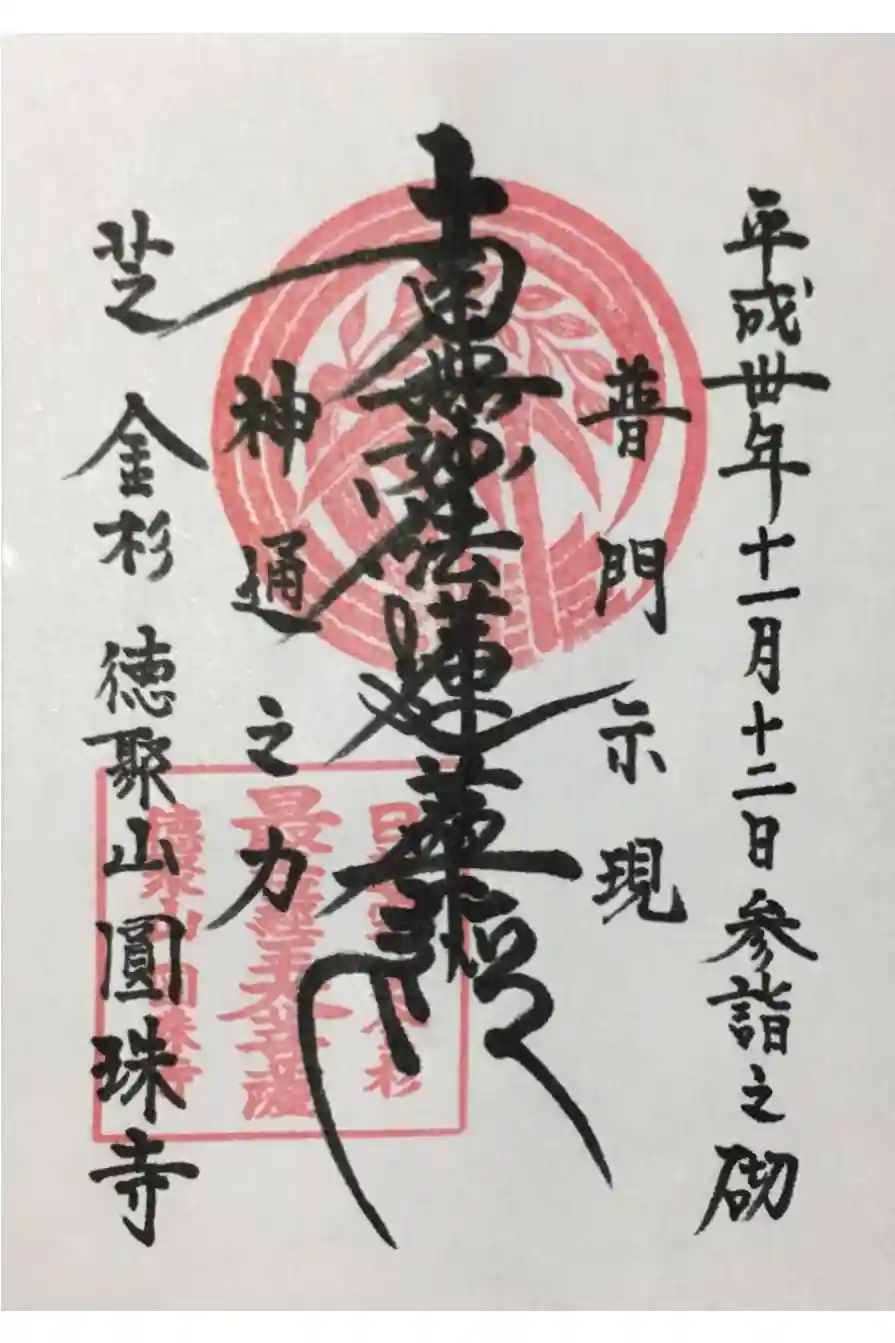 平成卅年十一月十二日参詣之砌
普門示現
南無妙法蓮華経
神通之力
芝金杉 徳聚山圓珠寺
最上位経王大菩薩
徳聚山圓珠寺